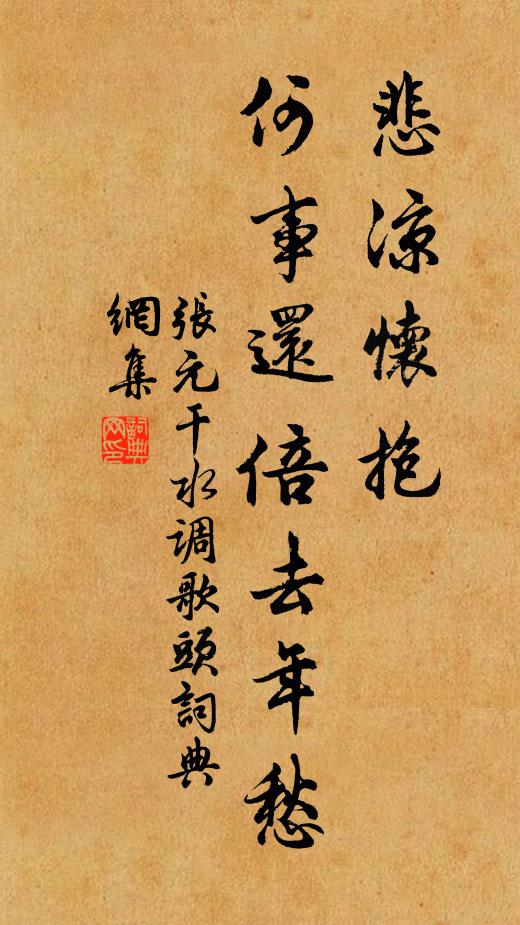 悲涼懷抱
何事還倍去年愁
張元干水调歌頭詞典
網集
詞典
网印